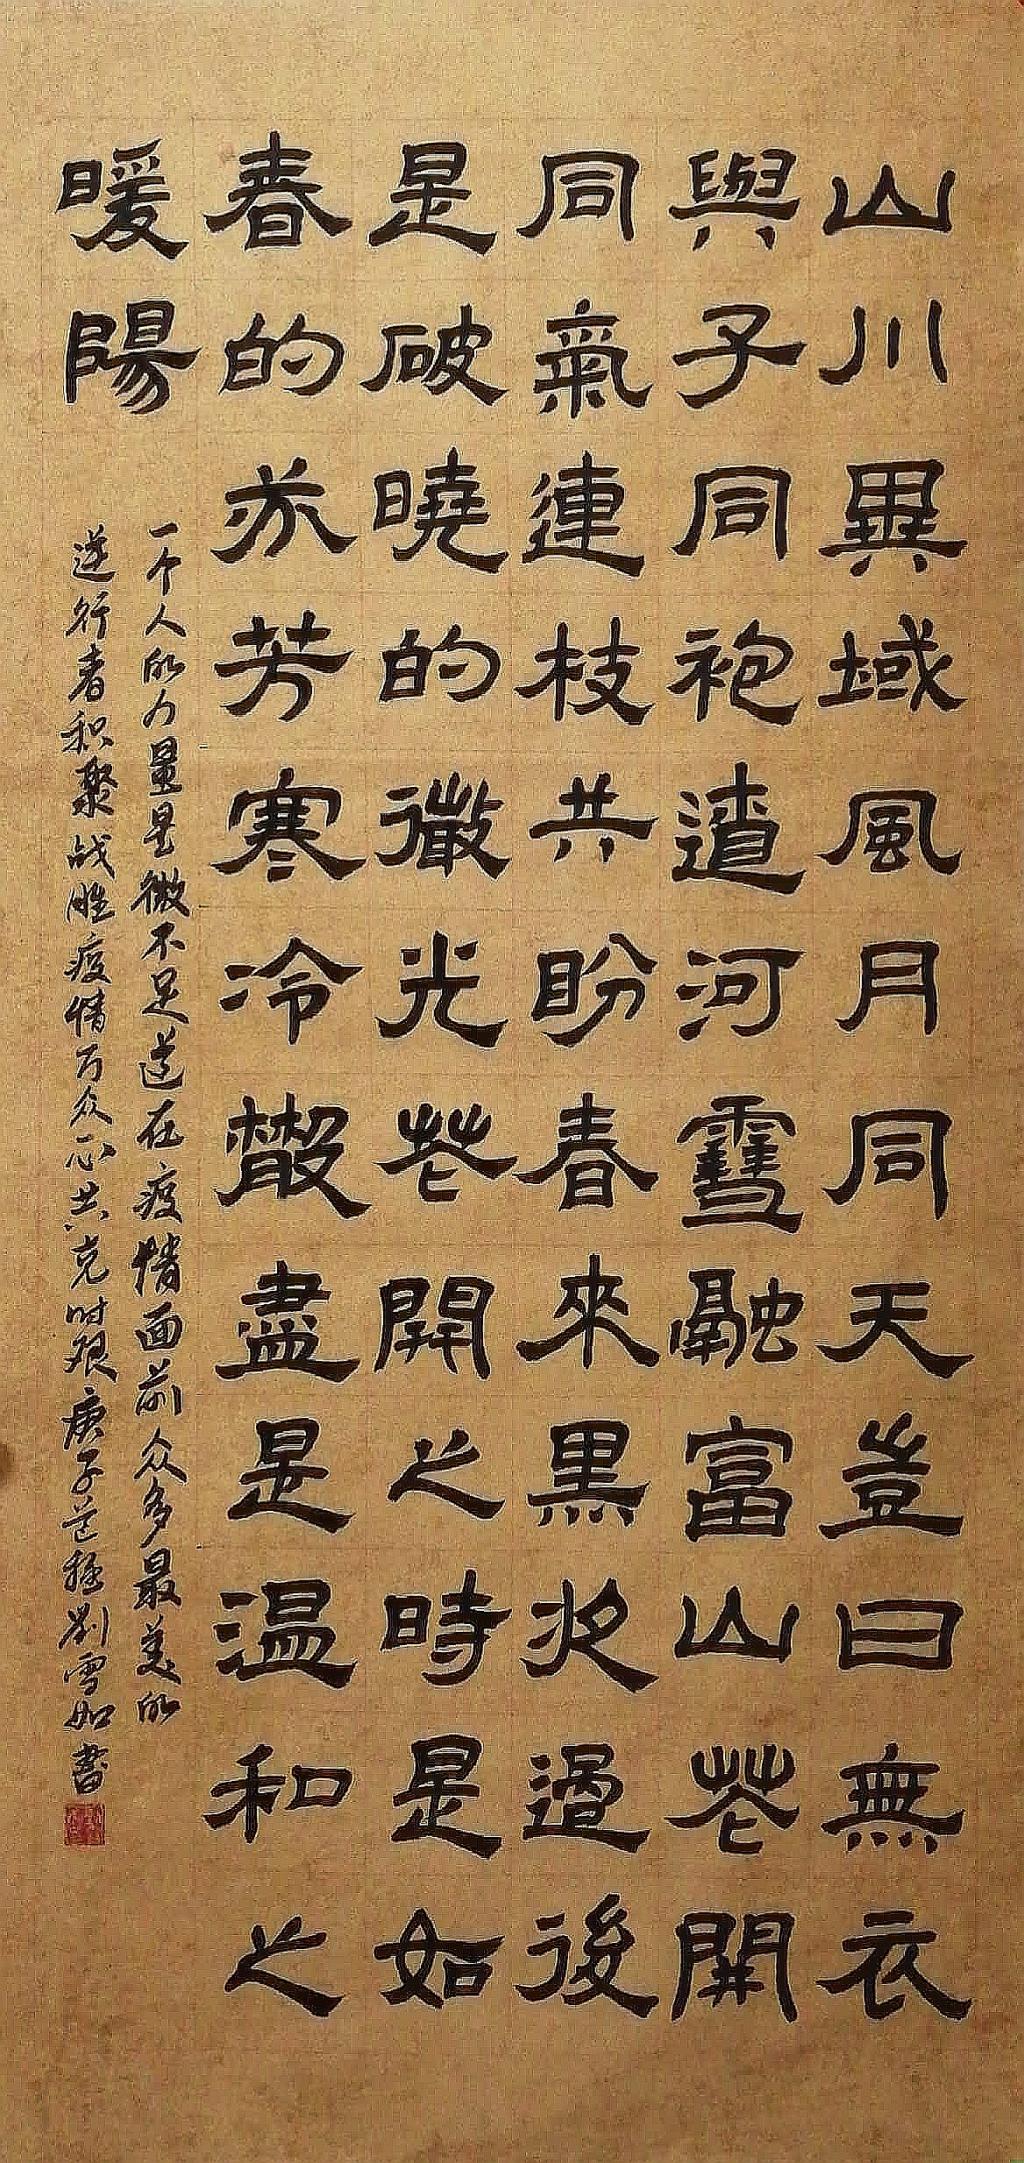 山川異域風月同天豈曰無衣
與子同袍遼河雪融富山花開
同氣連枝共盼春來黑夜過後
是破曉的微光花開之時是如
春的芬芳寒冷散盡是温和之
暖陽
一个人的力量是微不足道在疫情面前众多最美的
逆行者积聚战胜疫情万众一心共克时艰庚子芒种刘雪如書